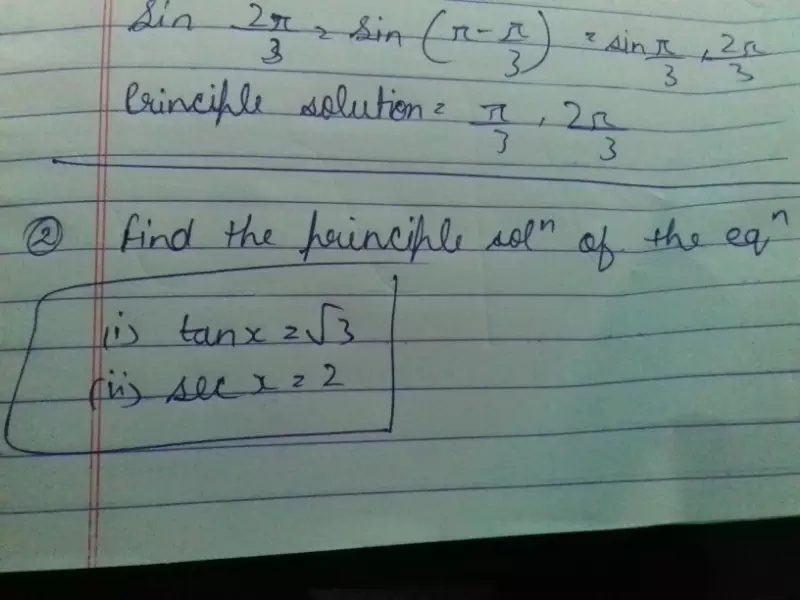 sin 2π/3 = sin (π - π/3) = sin π/3, 2π/3
Principle solution = π/3, 2π/3
② find the principle solⁿ of the eqⁿ
(i) tan x = √3
(ii) sec x = 2